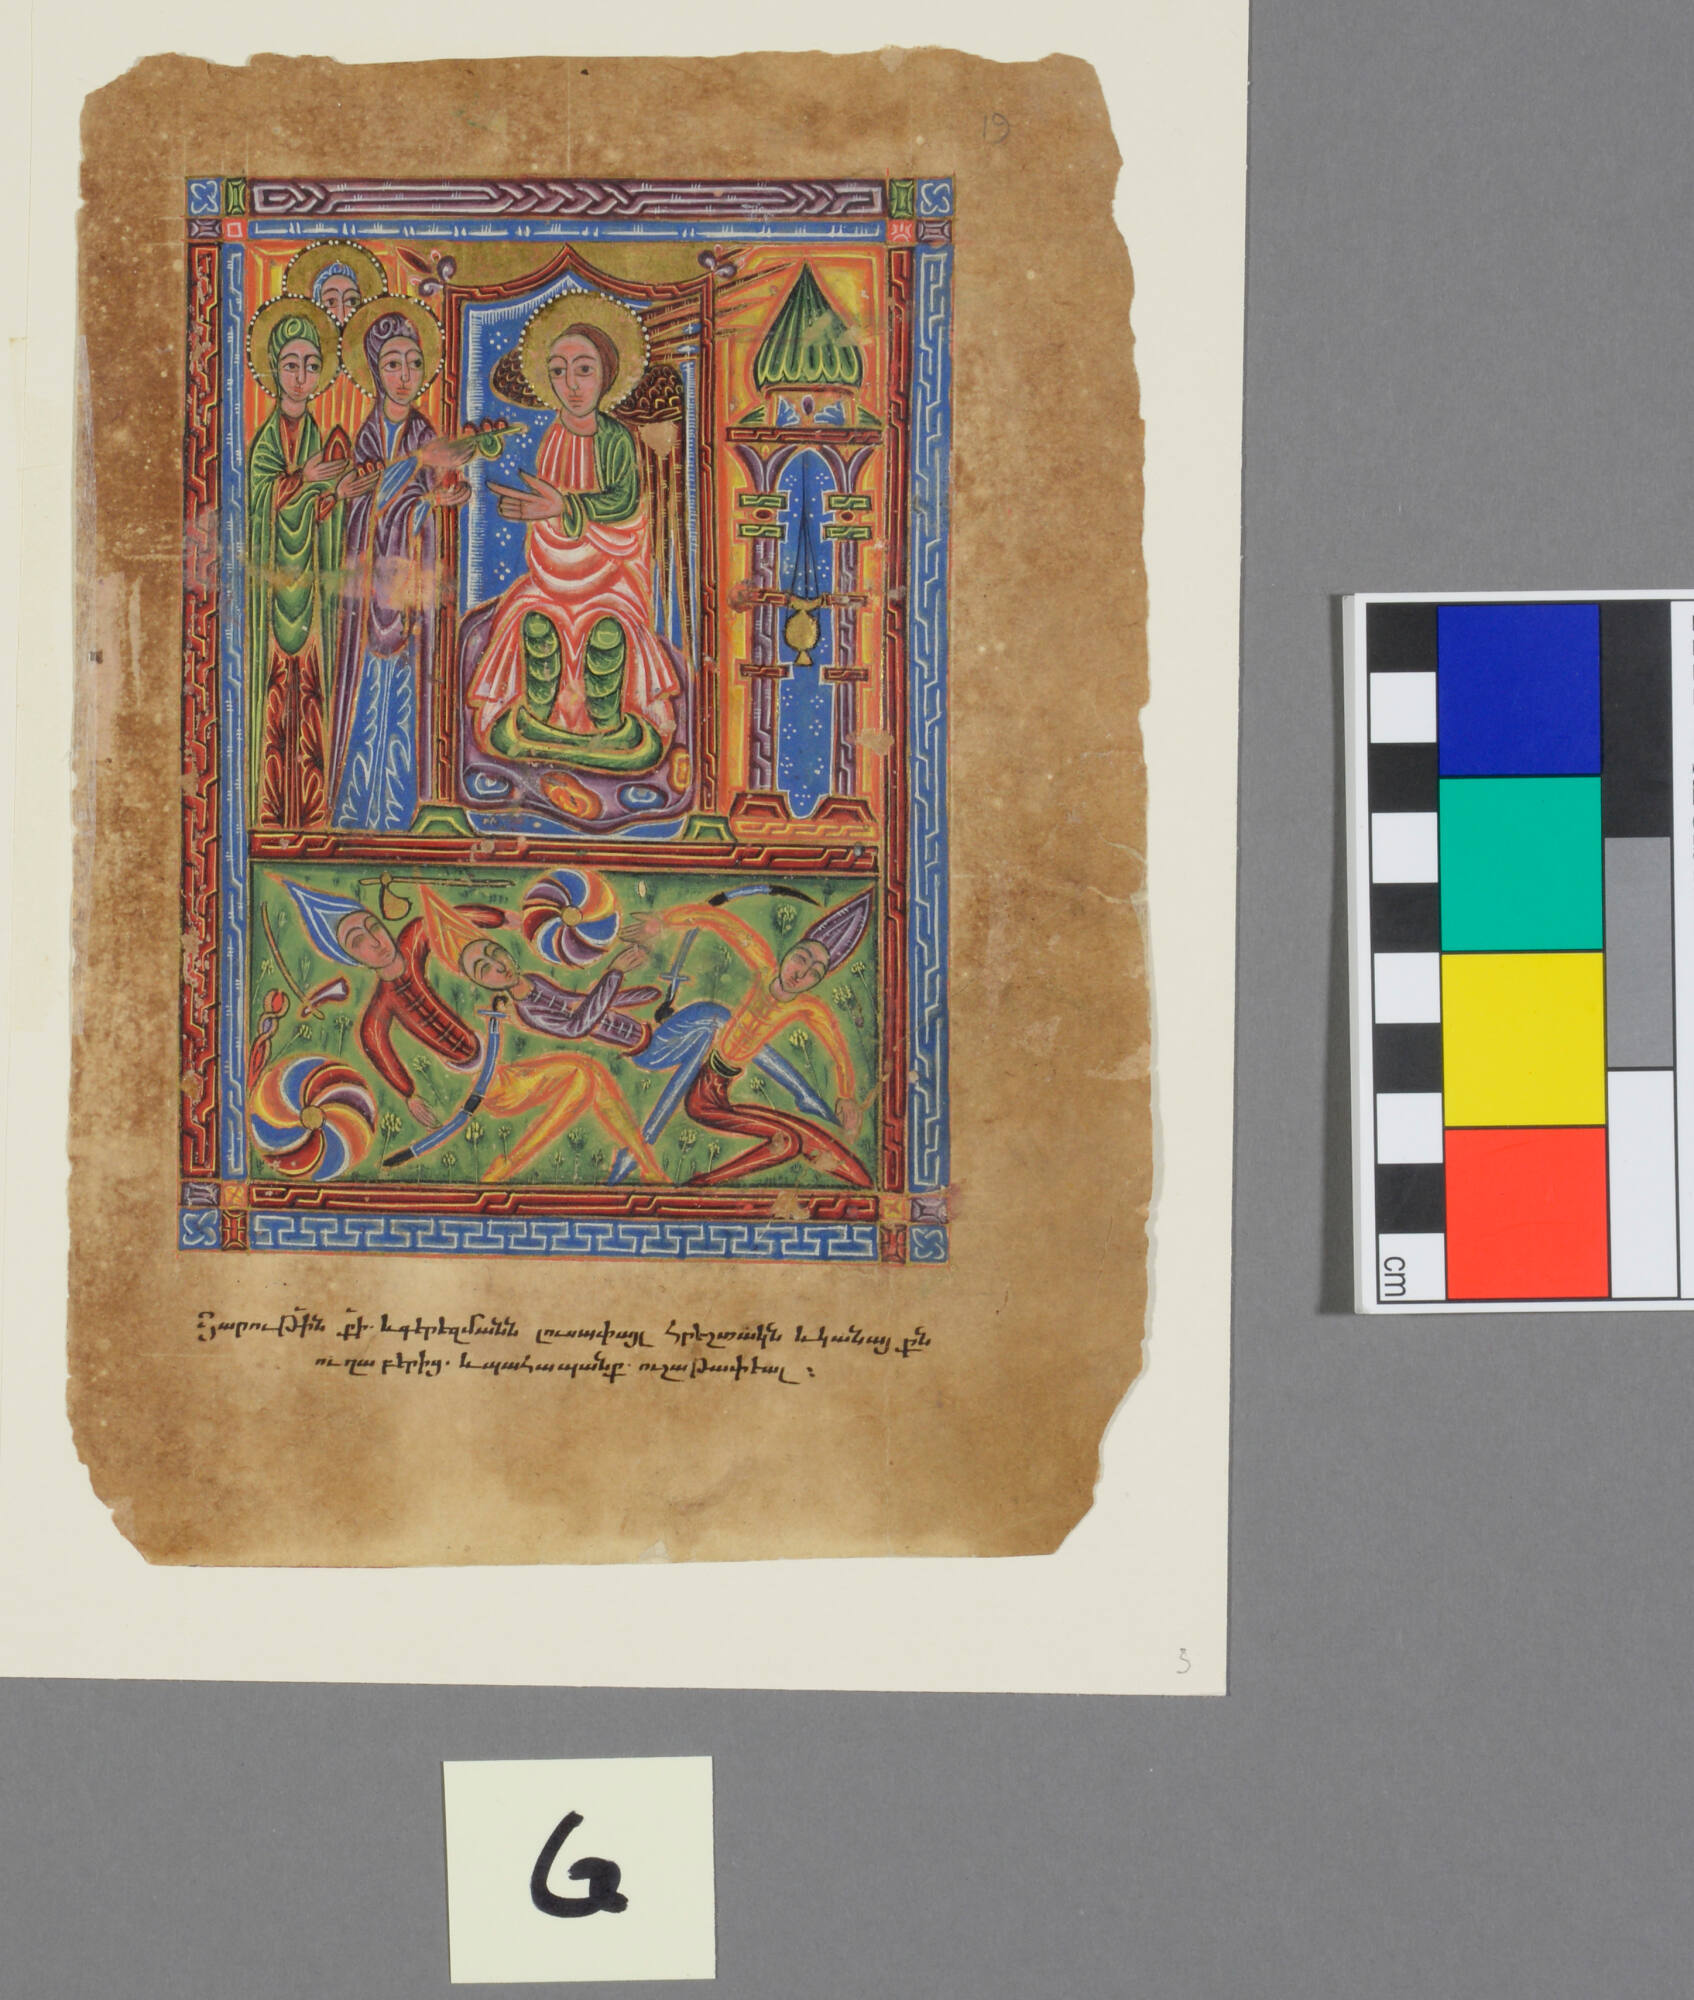 19
Յարութիւն քի. և գերեզմանն լուսափայլ հրեշտակն և կանայք
ուղաբերից. և պահապանք. ուշաթափեալ :
3
G
cm